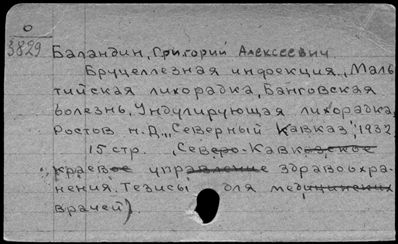 О
3829
Баландин, Григорий Алексеевич
Бруцеллезная инфекция, Маль
тийская лихорадка, Банговская
болезнь, Ундулирующая лихорадка,
Ростов н.Д., "Северный Кавказ", 1932.
15 стр. (Северо-Кавказское
краевое управление здравоохра-
нения. Тезисы для медицинских
врачей).